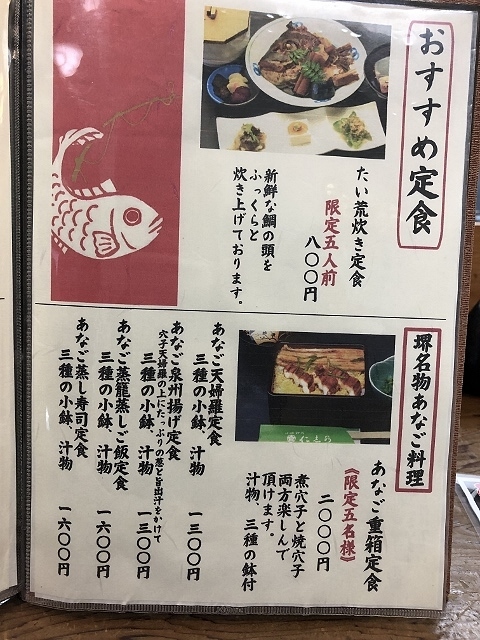 おすすめ定食
たい荒炊き定食
限定五人前
八〇〇円
新鮮な鯛の頭を
ふっくらと
炊き上げております。
堺名物あなご料理
あなご重箱定食
《限定五名様》
二〇〇〇円
煮穴子と焼穴子
両方楽しんで
頂けます。
汁物、三種の鉢付
あなご天婦羅定食
三種の小鉢、汁物 一三〇〇円
あなご泉州揚げ定食
穴子天婦羅の上にたっぷりの葱と旨出汁をかけて
三種の小鉢、汁物 一三〇〇円
あなご蒸籠蒸しご飯定食
三種の小鉢、汁物 一六〇〇円
あなご蒸し寿司定食
三種の小鉢、汁物 一六〇〇円